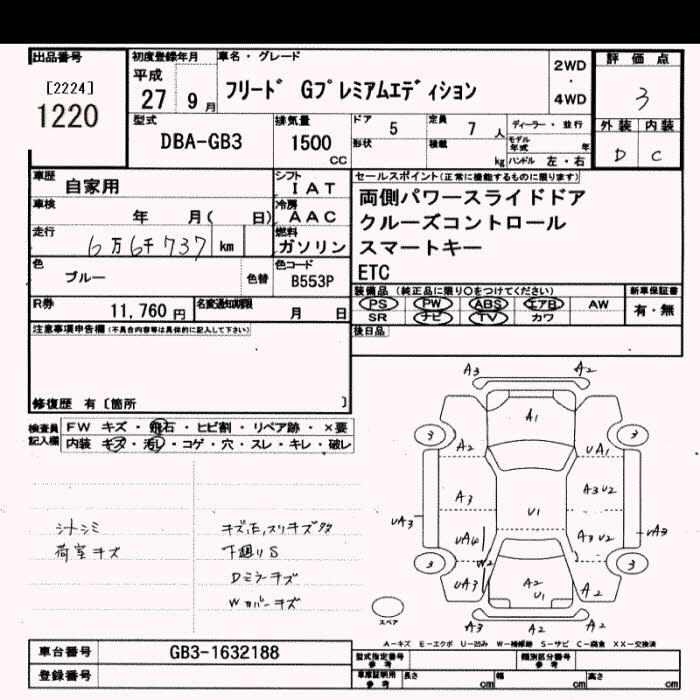 出品番号
[2224]
1220
初度登録年月
平成
27 9月
車名・グレード
フリード Gプレミアムエディション
2WD
・
4WD
評価点
3
外装 内装
D C
型式
DBA-GB3
排気量
1500
CC
ドア 5
定員 7 人
ディーラー・並行
形状
積載 kg
モデル年式 年
ハンドル 左・右
車歴
自家用
シフト
IAT
車検
年 月( 日)
冷房
AAC
走行
6万6千737 km
燃料
ガソリン
色
ブルー
色替
色コード
B553P
R券
11,760 円
名変通知期限
月 日
セールスポイント(正常に機能するものに限ります)
両側パワースライドドア
クルーズコントロール
スマートキー
ETC
装備品 (純正品に限り○をつけてください)
新車保証書
PS PW ABS エアB AW
SR ナビ TV カワ
有・無
後日品
注意事項申告欄(不具合内容等は具体的に記入して下さい)
修復歴 有〔箇所 〕
検査員
記入欄
FW キズ・飛石・ヒビ割・リペア跡・×要
内装 キズ・汚レ・コゲ・穴・スレ・キレ・破レ
汁シミ
荷室キズ
キズ凹,スリキズ多
下廻りS
Dミラーキズ
Wカバーキズ
A3 A2
A1
3 3
A2 UA1
A3 A3U2
UA3 U1 UA3
UA4 A3U2
3 W2 3
UA3 A2 U1 A2
A3 A2 A2
スペア
A-キズ E-エクボ U-凹み W-補修跡 S-サビ C-腐食 XX-交換済
車台番号
GB3-1632188
登録番号
型式指定番号
参考
類別区分番号
参考
車庫証明用
参考
長さ cm 幅 cm 高さ cm